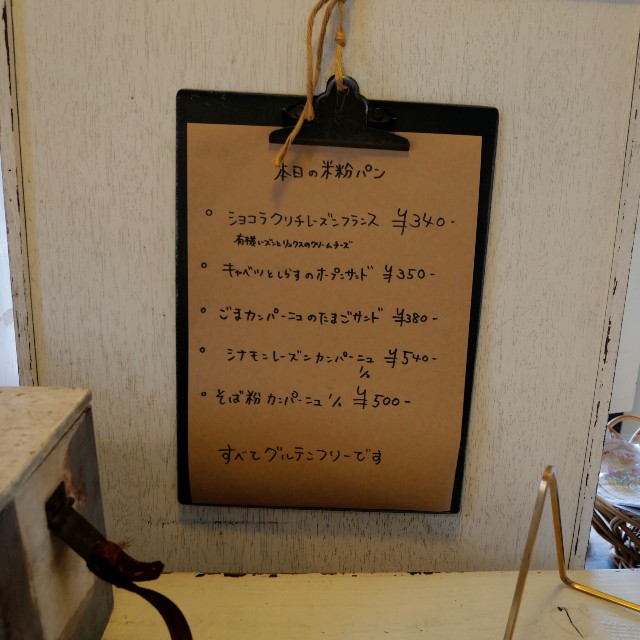 本日の米粉パン
ショコラクリチレーズンフランス ¥340-
有機レーズンとリュクスのクリームチーズ
キャベツとしらすのオープンサンド ¥350-
ごまカンパーニュのたまごサンド ¥380-
シナモンレーズンカンパーニュ ¥540-
1/2
そば粉カンパーニュ 1/2 ¥500-
すべてグルテンフリーです